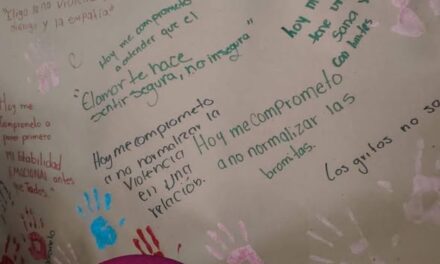 "Elijo la no violencia
dialogo y la empatía"
Hoy me comprometo
a entender que el
"El amor te hace
sentir segura, no insegura"
Hoy
tiene
sana y
Con límites
Hoy me
comprometo a
poner primero
MI Estabilidad
EMOCIONAL antes
que
Hoy me comprometo
a no normalizar la
violencia
en una
relación.
Hoy me comprometo
a no normalizar las
bromitas.
Los gritos no